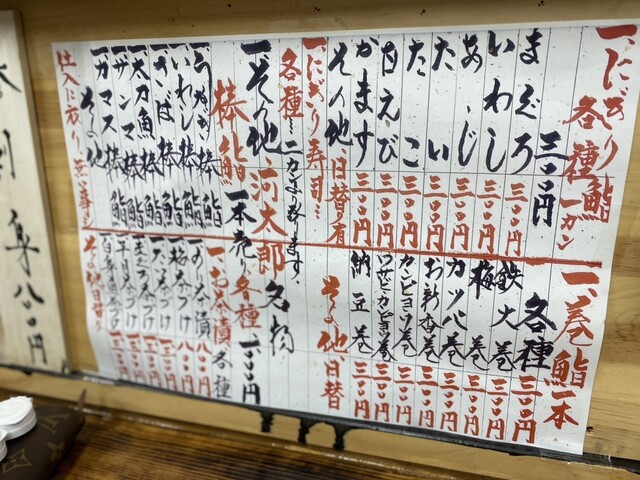 一、にぎり鮨
各種 一カン
三〇〇円
まぐろ 三〇〇円
いわし 三〇〇円
あじ 三〇〇円
たい 三〇〇円
たこ 三〇〇円
甘えび 三〇〇円
かます 三〇〇円
その他 日替り有
一、にぎり寿司…
各種…二カンより承ります。
一、その他 河太郎名物
棒鮨 一本売り各種
一、うなぎ棒鮨
一、いわし棒鮨
一、さば棒鮨
一、太刀魚棒鮨
一、サンマ棒鮨
一、カマス棒鮨
その他
仕入に依り無い事も
一、巻鮨一本
各種
鉄火巻 三〇〇円
梅巻 三〇〇円
カッパ巻 三〇〇円
お新香巻 三〇〇円
カンピョウ巻 三〇〇円
ワサビカンピョウ巻 三〇〇円
納豆巻 三〇〇円
その他日替
一、お茶漬各種
一、のり茶漬 八〇〇円
一、梅茶づけ 八〇〇円
その他日替り
刺身 八〇円